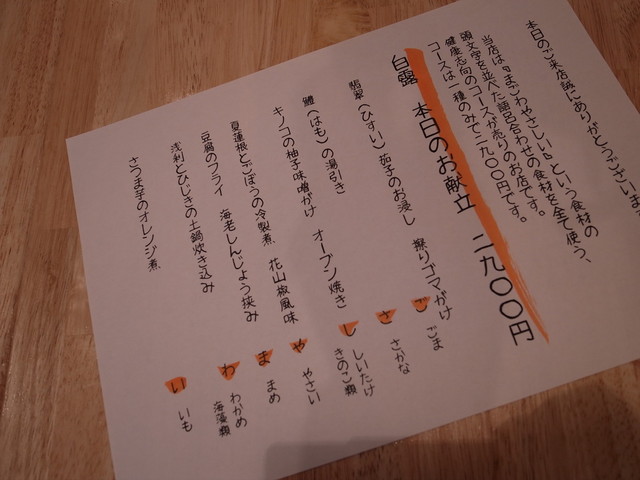 本日のご来店誠にありがとうございま
当店は『まごわやさしい』という食材の
頭文字を並べた語呂合わせの食材を全て使う、
健康志向のコースが売りのお店です。
コースは一種のみで二九〇〇円です。
白露 本日のお献立 二九〇〇円
翡翠(ひすい)茄子のお浸し 擦りゴマがけ ご ごま
鱧(はも)の湯引き さ さかな
キノコの柚子味噌がけ オーブン焼き し しいたけ きのこ類
夏蓮根とごぼうの冷製煮 花山椒風味 や やさい
豆腐のフライ 海老しんじょう挟み ま まめ
浅利とひじきの土鍋炊き込み わ わかめ 海藻類
さつま芋のオレンジ煮 い いも